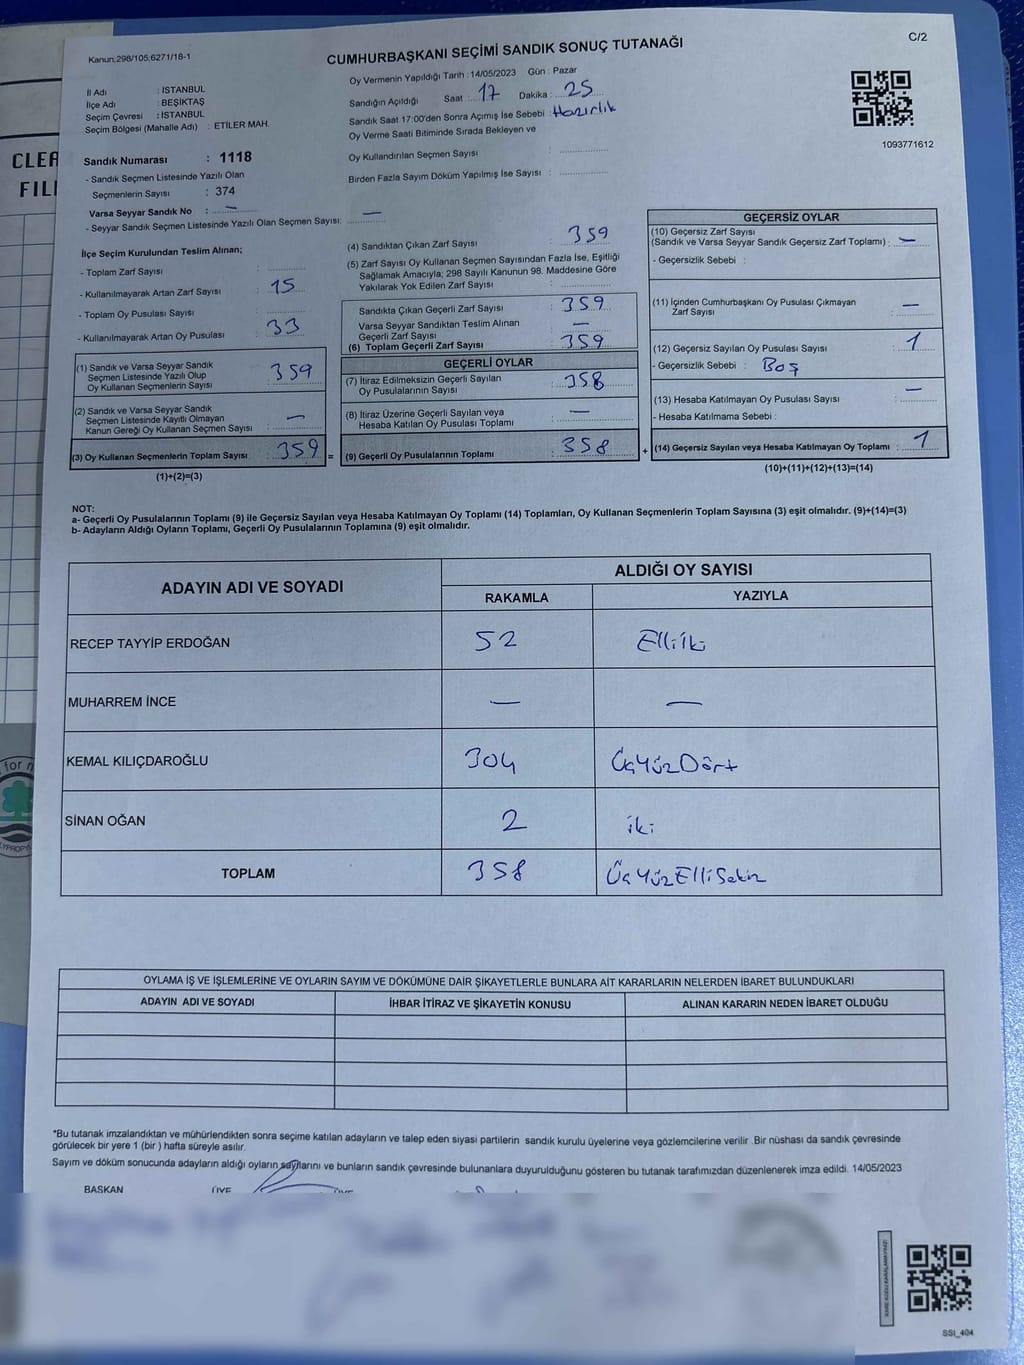 Kanun,298/105;6271/18-1
CUMHURBAŞKANI SEÇİMİ SANDIK SONUÇ TUTANAĞI
C/2
İl Adı : İSTANBUL
İlçe Adı : BEŞİKTAŞ
Seçim Çevresi : İSTANBUL
Seçim Bölgesi (Mahalle Adı) : ETİLER MAH.
Sandık Numarası : 1118
- Sandık Seçmen Listesinde Yazılı Olan
Seçmenlerin Sayısı : 374
Varsa Seyyar Sandık No : —
- Seyyar Sandık Seçmen Listesinde Yazılı Olan Seçmen Sayısı: —
Oy Vermenin Yapıldığı Tarih : 14/05/2023 Gün : Pazar
Sandığın Açıldığı Saat : 17 Dakika : 25
Sandık Saat 17:00'den Sonra Açımış İse Sebebi : Hazırlık
Oy Verme Saati Bitiminde Sırada Bekleyen ve
Oy Kullandırılan Seçmen Sayısı :
Birden Fazla Sayım Döküm Yapılmış İse Sayısı :
1093771612
İlçe Seçim Kurulundan Teslim Alınan;
- Toplam Zarf Sayısı :
- Kullanılmayarak Artan Zarf Sayısı : 15
- Toplam Oy Pusulası Sayısı :
- Kullanılmayarak Artan Oy Pusulası : 33
(1) Sandık ve Varsa Seyyar Sandık
Seçmen Listesinde Yazılı Olup
Oy Kullanan Seçmenlerin Sayısı : 359
(2) Sandık ve Varsa Seyyar Sandık
Seçmen Listesinde Kayıtlı Olmayan
Kanun Gereği Oy Kullanan Seçmen Sayısı : —
(3) Oy Kullanan Seçmenlerin Toplam Sayısı : 359 =
(1)+(2)=(3)
(4) Sandıktan Çıkan Zarf Sayısı : 359
(5) Zarf Sayısı Oy Kullanan Seçmen Sayısından Fazla İse, Eşitliği
Sağlamak Amacıyla; 298 Sayılı Kanunun 98. Maddesine Göre
Yakılarak Yok Edilen Zarf Sayısı :
Sandıkta Çıkan Geçerli Zarf Sayısı : 359
Varsa Seyyar Sandıktan Teslim Alınan
Geçerli Zarf Sayısı : —
(6) Toplam Geçerli Zarf Sayısı : 359
GEÇERLİ OYLAR
(7) İtiraz Edilmeksizin Geçerli Sayılan
Oy Pusulalarının Sayısı : 358
(8) İtiraz Üzerine Geçerli Sayılan veya
Hesaba Katılan Oy Pusulası Toplamı : —
(9) Geçerli Oy Pusulalarının Toplamı : 358 +
GEÇERSİZ OYLAR
(10) Geçersiz Zarf Sayısı
(Sandık ve Varsa Seyyar Sandık Geçersiz Zarf Toplamı) : —
- Geçersizlik Sebebi :
(11) İçinden Cumhurbaşkanı Oy Pusulası Çıkmayan
Zarf Sayısı : —
(12) Geçersiz Sayılan Oy Pusulası Sayısı : 1
- Geçersizlik Sebebi : Boş
(13) Hesaba Katılmayan Oy Pusulası Sayısı : —
- Hesaba Katılmama Sebebi :
(14) Geçersiz Sayılan veya Hesaba Katılmayan Oy Toplamı : 1
(10)+(11)+(12)+(13)=(14)
NOT:
a- Geçerli Oy Pusulalarının Toplamı (9) ile Geçersiz Sayılan veya Hesaba Katılmayan Oy Toplamı (14) Toplamları, Oy Kullanan Seçmenlerin Toplam Sayısına (3) eşit olmalıdır. (9)+(14)=(3)
b- Adayların Aldığı Oyların Toplamı, Geçerli Oy Pusulalarının Toplamına (9) eşit olmalıdır.
ADAYIN ADI VE SOYADI ALDIĞI OY SAYISI
RAKAMLA YAZIYLA
RECEP TAYYİP ERDOĞAN 52 Elliiki
MUHARREM İNCE — —
KEMAL KILIÇDAROĞLU 304 ÜçYüzDört
SİNAN OĞAN 2 iki
TOPLAM 358 ÜçYüzElliSekiz
OYLAMA İŞ VE İŞLEMLERİNE VE OYLARIN SAYIM VE DÖKÜMÜNE DAİR ŞİKAYETLERLE BUNLARA AİT KARARLARIN NELERDEN İBARET BULUNDUKLARI
ADAYIN ADI VE SOYADI İHBAR İTİRAZ VE ŞİKAYETİN KONUSU ALINAN KARARIN NEDEN İBARET OLDUĞU
*Bu tutanak imzalandıktan ve mühürlendikten sonra seçime katılan adayların ve talep eden siyasi partilerin sandık kurulu üyelerine veya gözlemcilerine verilir .Bir nüshası da sandık çevresinde
görülecek bir yere 1 (bir ) hafta süreyle asılır.
Sayım ve döküm sonucunda adayların aldığı oyların sayılarını ve bunların sandık çevresinde bulunanlara duyurulduğunu gösteren bu tutanak tarafımızdan düzenlenerek imza edildi. 14/05/2023
BAŞKAN ÜYE ÜYE
SSI_404